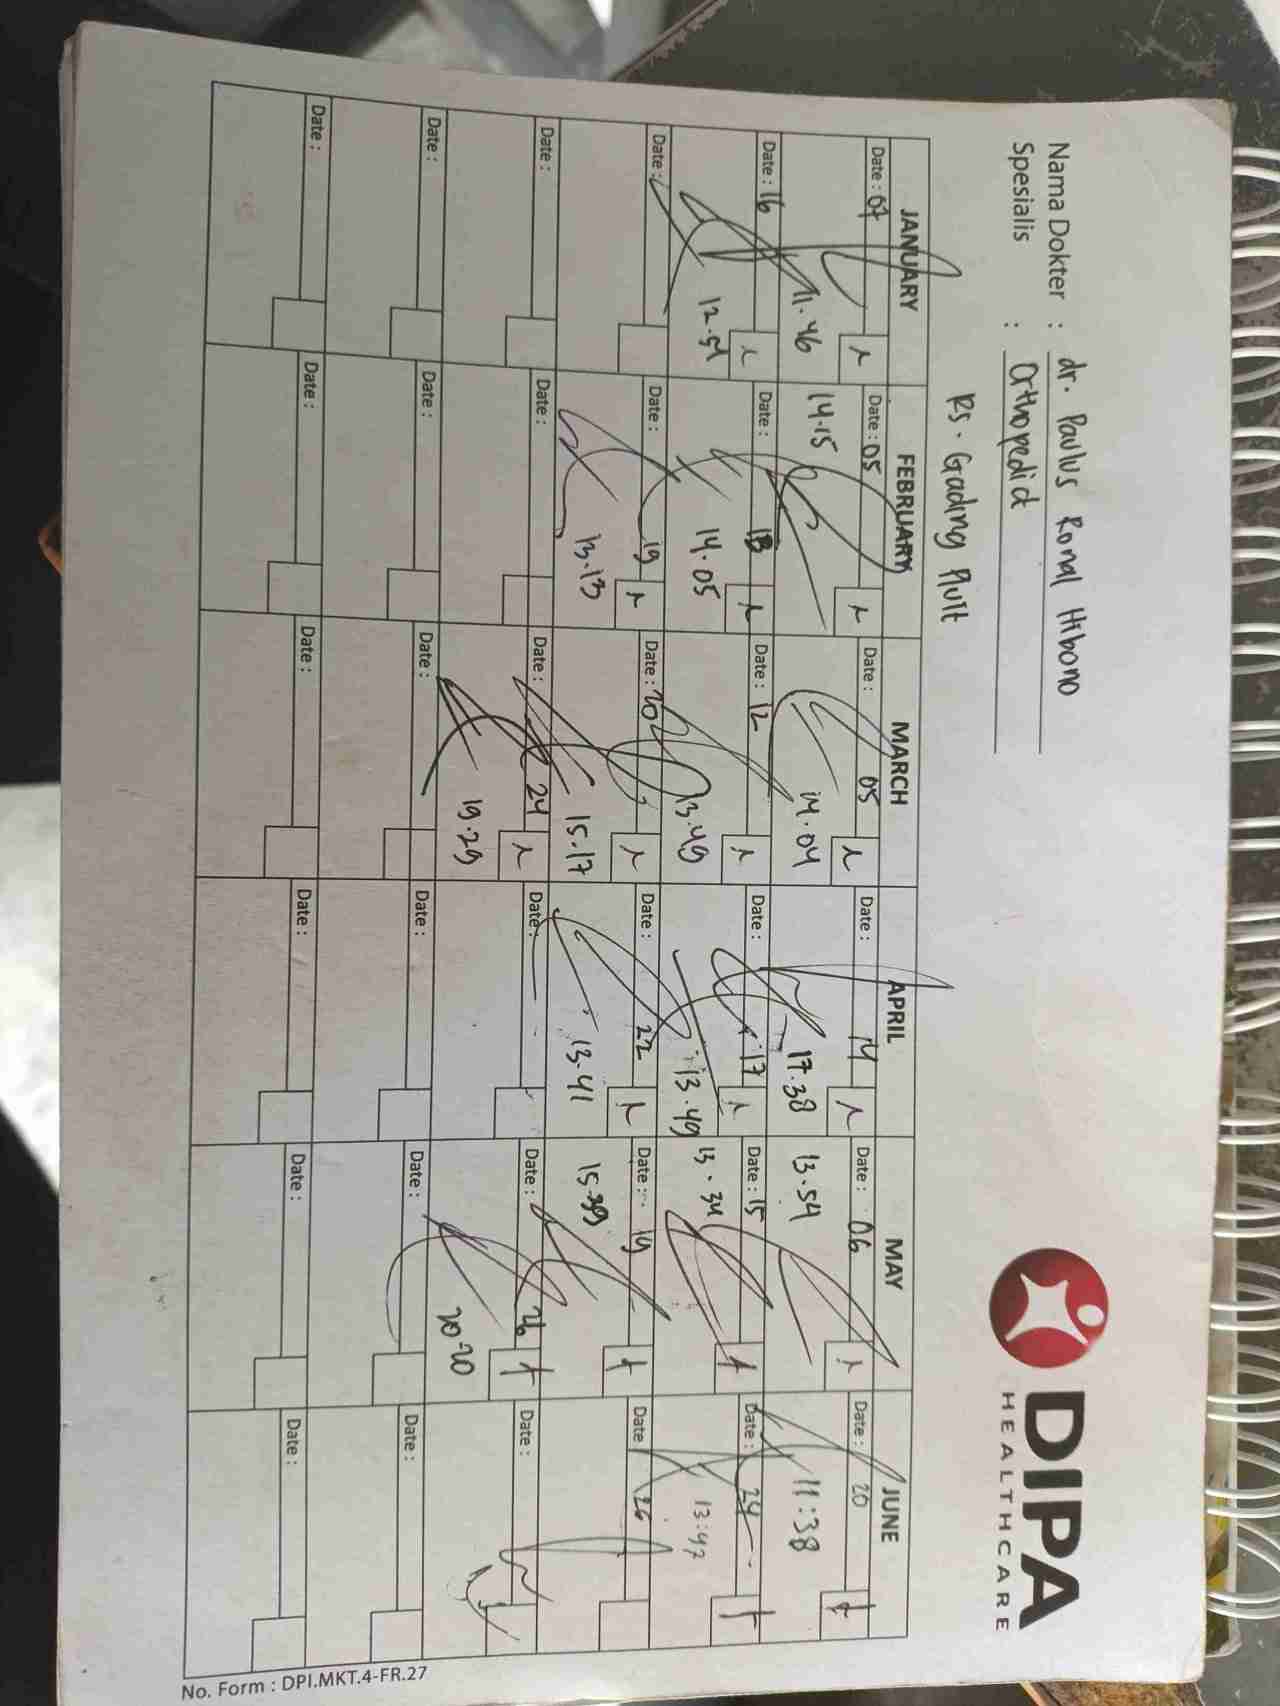 Nama Dokter : dr. Paulus Ronal Hibono
Spesialis : Orthopedid
Rs. Gading Pluit
DIPA
HEALTHCARE
JANUARY FEBRUARY MARCH APRIL MAY JUNE
Date : 07 Date : 05 Date : 05 Date : 14 Date : 06 Date : 20
11.46 14.15 14.04 17.38 13.54 11:38
Date : 16 Date : 13 Date : 12 Date : 17 Date : 15 Date : 24
12.51 14.05 13.49 13.49 13.34 13:47
Date : Date : 19 Date : 20 Date : 22 Date : 19 Date 26
13.13 15.17 13.41 15.39
Date : Date : Date : 24 Date : Date : 26 Date :
19.29 20.20
Date : Date : Date : Date : Date : Date :
Date : Date : Date : Date : Date : Date :
No. Form : DPI.MKT.4-FR.27